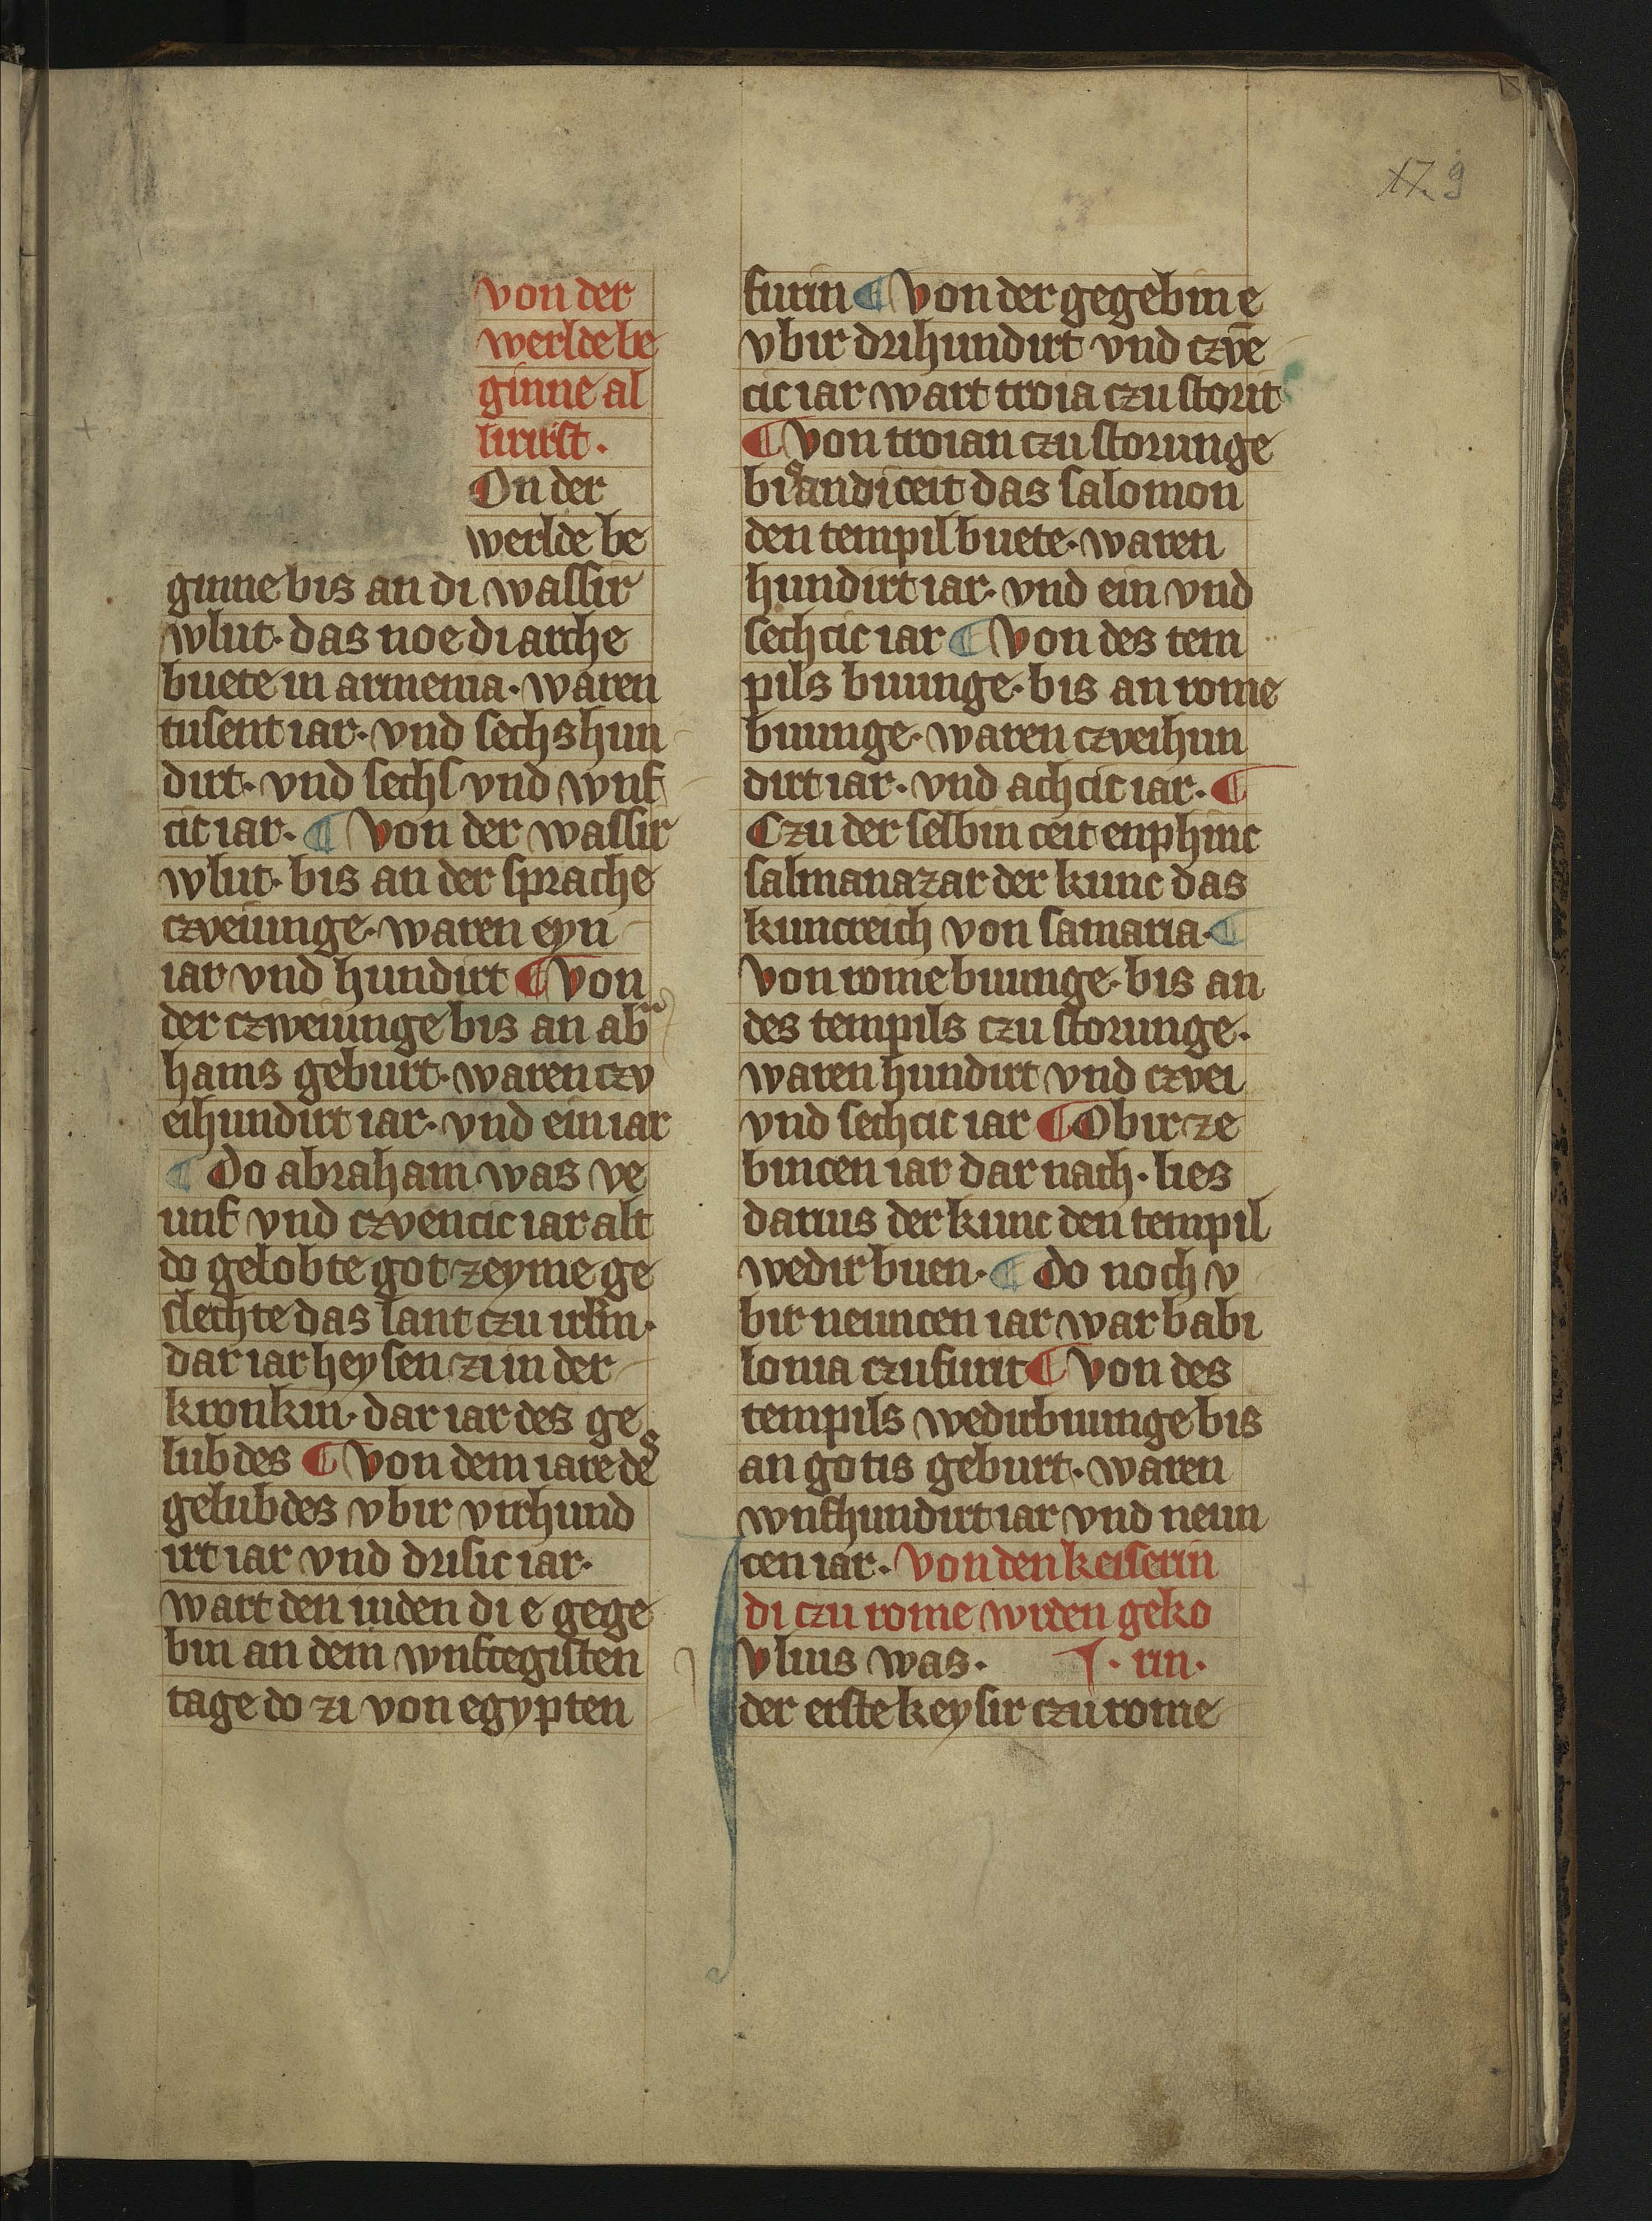 17. 9
von der
werlde be
ginne al
lirirst.
On der
werlde be
ginne bis an di wassir
wlut. das noe di arche
buete in armenia. waren
tusent iar. vnd sechs hun
dirt. vnd sechs vnd wnf
cit iar. ¶ Von der wassir
wlut. bis an der sprache
czveiunge. waren eyn
iar vnd hundirt ¶ Von
der czweiunge bis an abr
hams geburt. waren czv
eihundirt iar. vnd ein iar
¶ Do abraham was ve
unf vnd czvencic iar alt
do gelobte got zeyme ge
slechte das lant czu irlin.
dar iar heysen zi in der
kronkin. dar iar des ge
lubdes ¶ Von dem iare des
gelubdes vbir virhund
irt iar vnd drisic iar.
wart den iuden di e gege
bin an dem wnfcegisten
tage do zi von egypten
furin ¶ Von der gegebin e
vbir drihundirt vnd czvē
cic iar wart troia czu storit
¶ Von troian czu storunge
bis an di ceit das salomon
den tempil buete. waren
hundirt iar. vnd ein vnd
sechcic iar ¶ Von des tem
pils buunge. bis an rome
buunge. waren czveihun
dirt iar. vnd achcit iar. ¶
Czu der selbin ceit enphinc
salmanazar der kunc das
kuncreich von samaria. ¶
Von rome buunge. bis an
des tempils czu storunge.
waren hundirt vnd czvei
vnd sechcic iar ¶ Obir ze
bincen iar dar nach. lies
darius der kunc den tempil
wedir buen. ¶ Do noch v
bir neuncen iar war babi
lonia czufurit ¶ Von des
tempils wedirbuunge bis
an gotis geburt. waren
wnfhundirt iar vnd neun
cen iar. Von den keiserin
di czu rome wrden geko
rin.
Vlius was.
der erste keysir czu rome